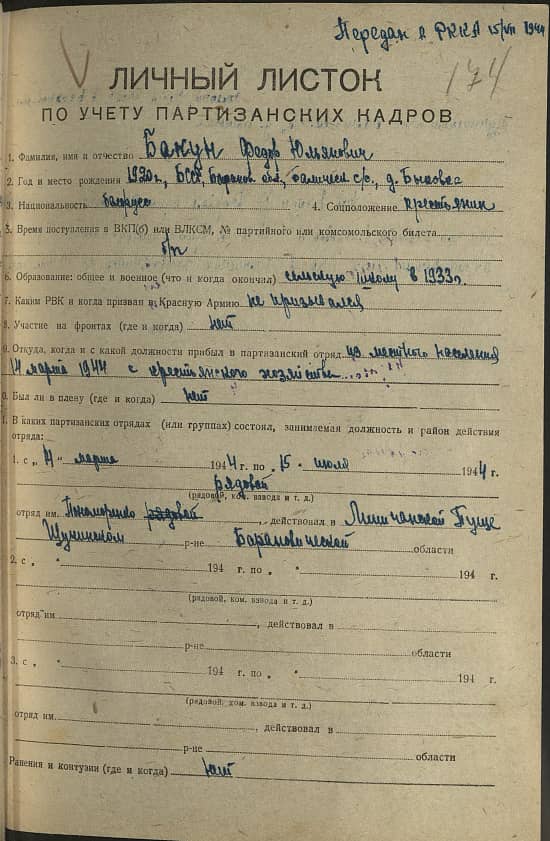 Передан в РККА 15/VII 1944
174
ЛИЧНЫЙ ЛИСТОК
ПО УЧЕТУ ПАРТИЗАНСКИХ КАДРОВ
1. Фамилия, имя и отчество Бакун Федор Юльянович
2. Год и место рождения 1920г, БССР, Баранов. обл, с/с, д.
3. Национальность белорус 4. Соцположение крестьянин
5. Время поступления в ВКП(б) или ВЛКСМ, № партийного или комсомольского билета
б/п
6. Образование: общее и военное (что и когда окончил) сельскую школу в 1933г.
7. Каким РВК и когда призван в Красную Армию не призывался
8. Участие на фронтах (где и когда) нет
9. Откуда, когда и с какой должности прибыл в партизанский отряд из местного населения
14 марта 1944 с крестьянского хозяйства
0. Был ли в плену (где и когда) нет
1. В каких партизанских отрядах (или группах) состоял, занимаемая должность и район действия
отряда:
1. с „ " марта 1944 г. по „ 15 " июля 1944 г.
рядовой
(рядовой, ком. взвода и т. д.)
отряд им. Пономаренко рядовой, действовал в Липичанской Пуще
Щучинском р-не Барановической области
2. с „ " 194 г. по „ " 194 г.
(рядовой, ком. взвода и т. д.)
отряд им. , действовал в
р-не области
3. с „ " 194 г. по „ " 194 г.
(рядовой, ком. взвода и т. д.)
отряд им. , действовал в
р-не области
Ранения и контузии (где и когда) нет